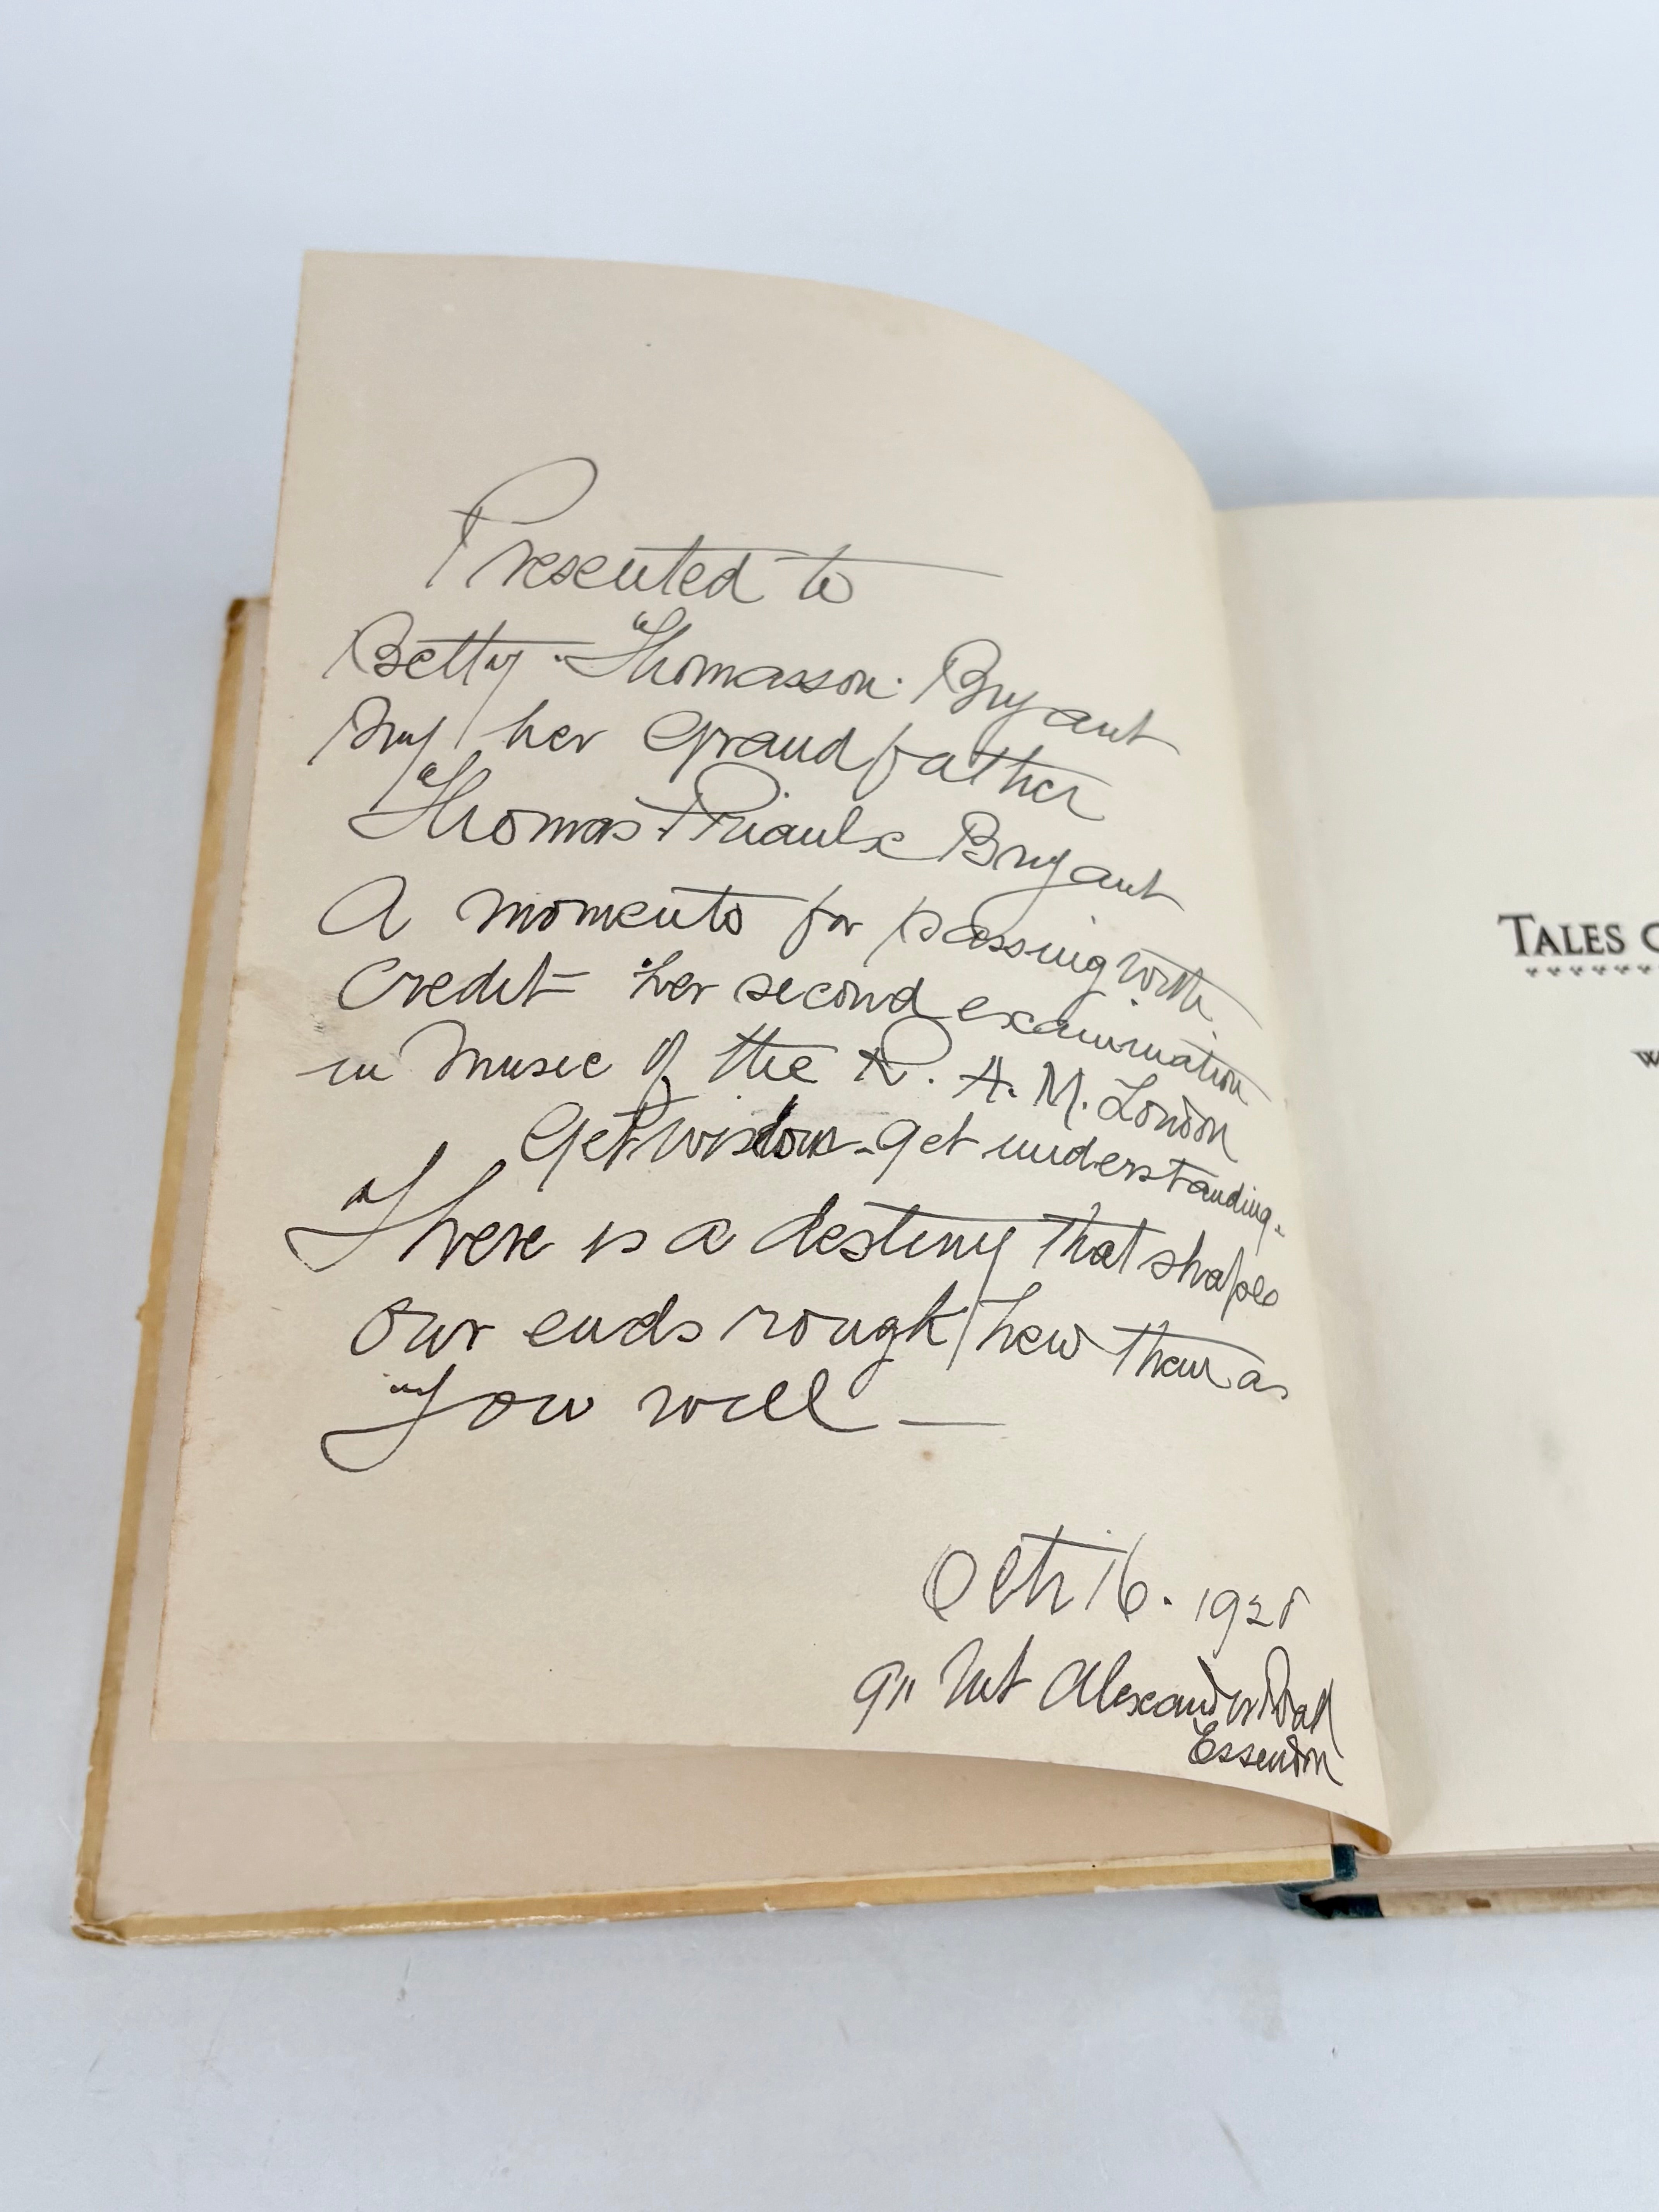 Presented to
Betty Thomasson Bryant
By her Grandfather
Thomas Priaulx Bryant
A momento for passing with
Credit = her second examination
in music of the R. A. M. London
Get wisdom - get understanding -
There is a destiny that shapes
our ends rough hew them as
You will —
Octr 16. 1928
911 Mt Alexander Road
Essendon
TALES
W